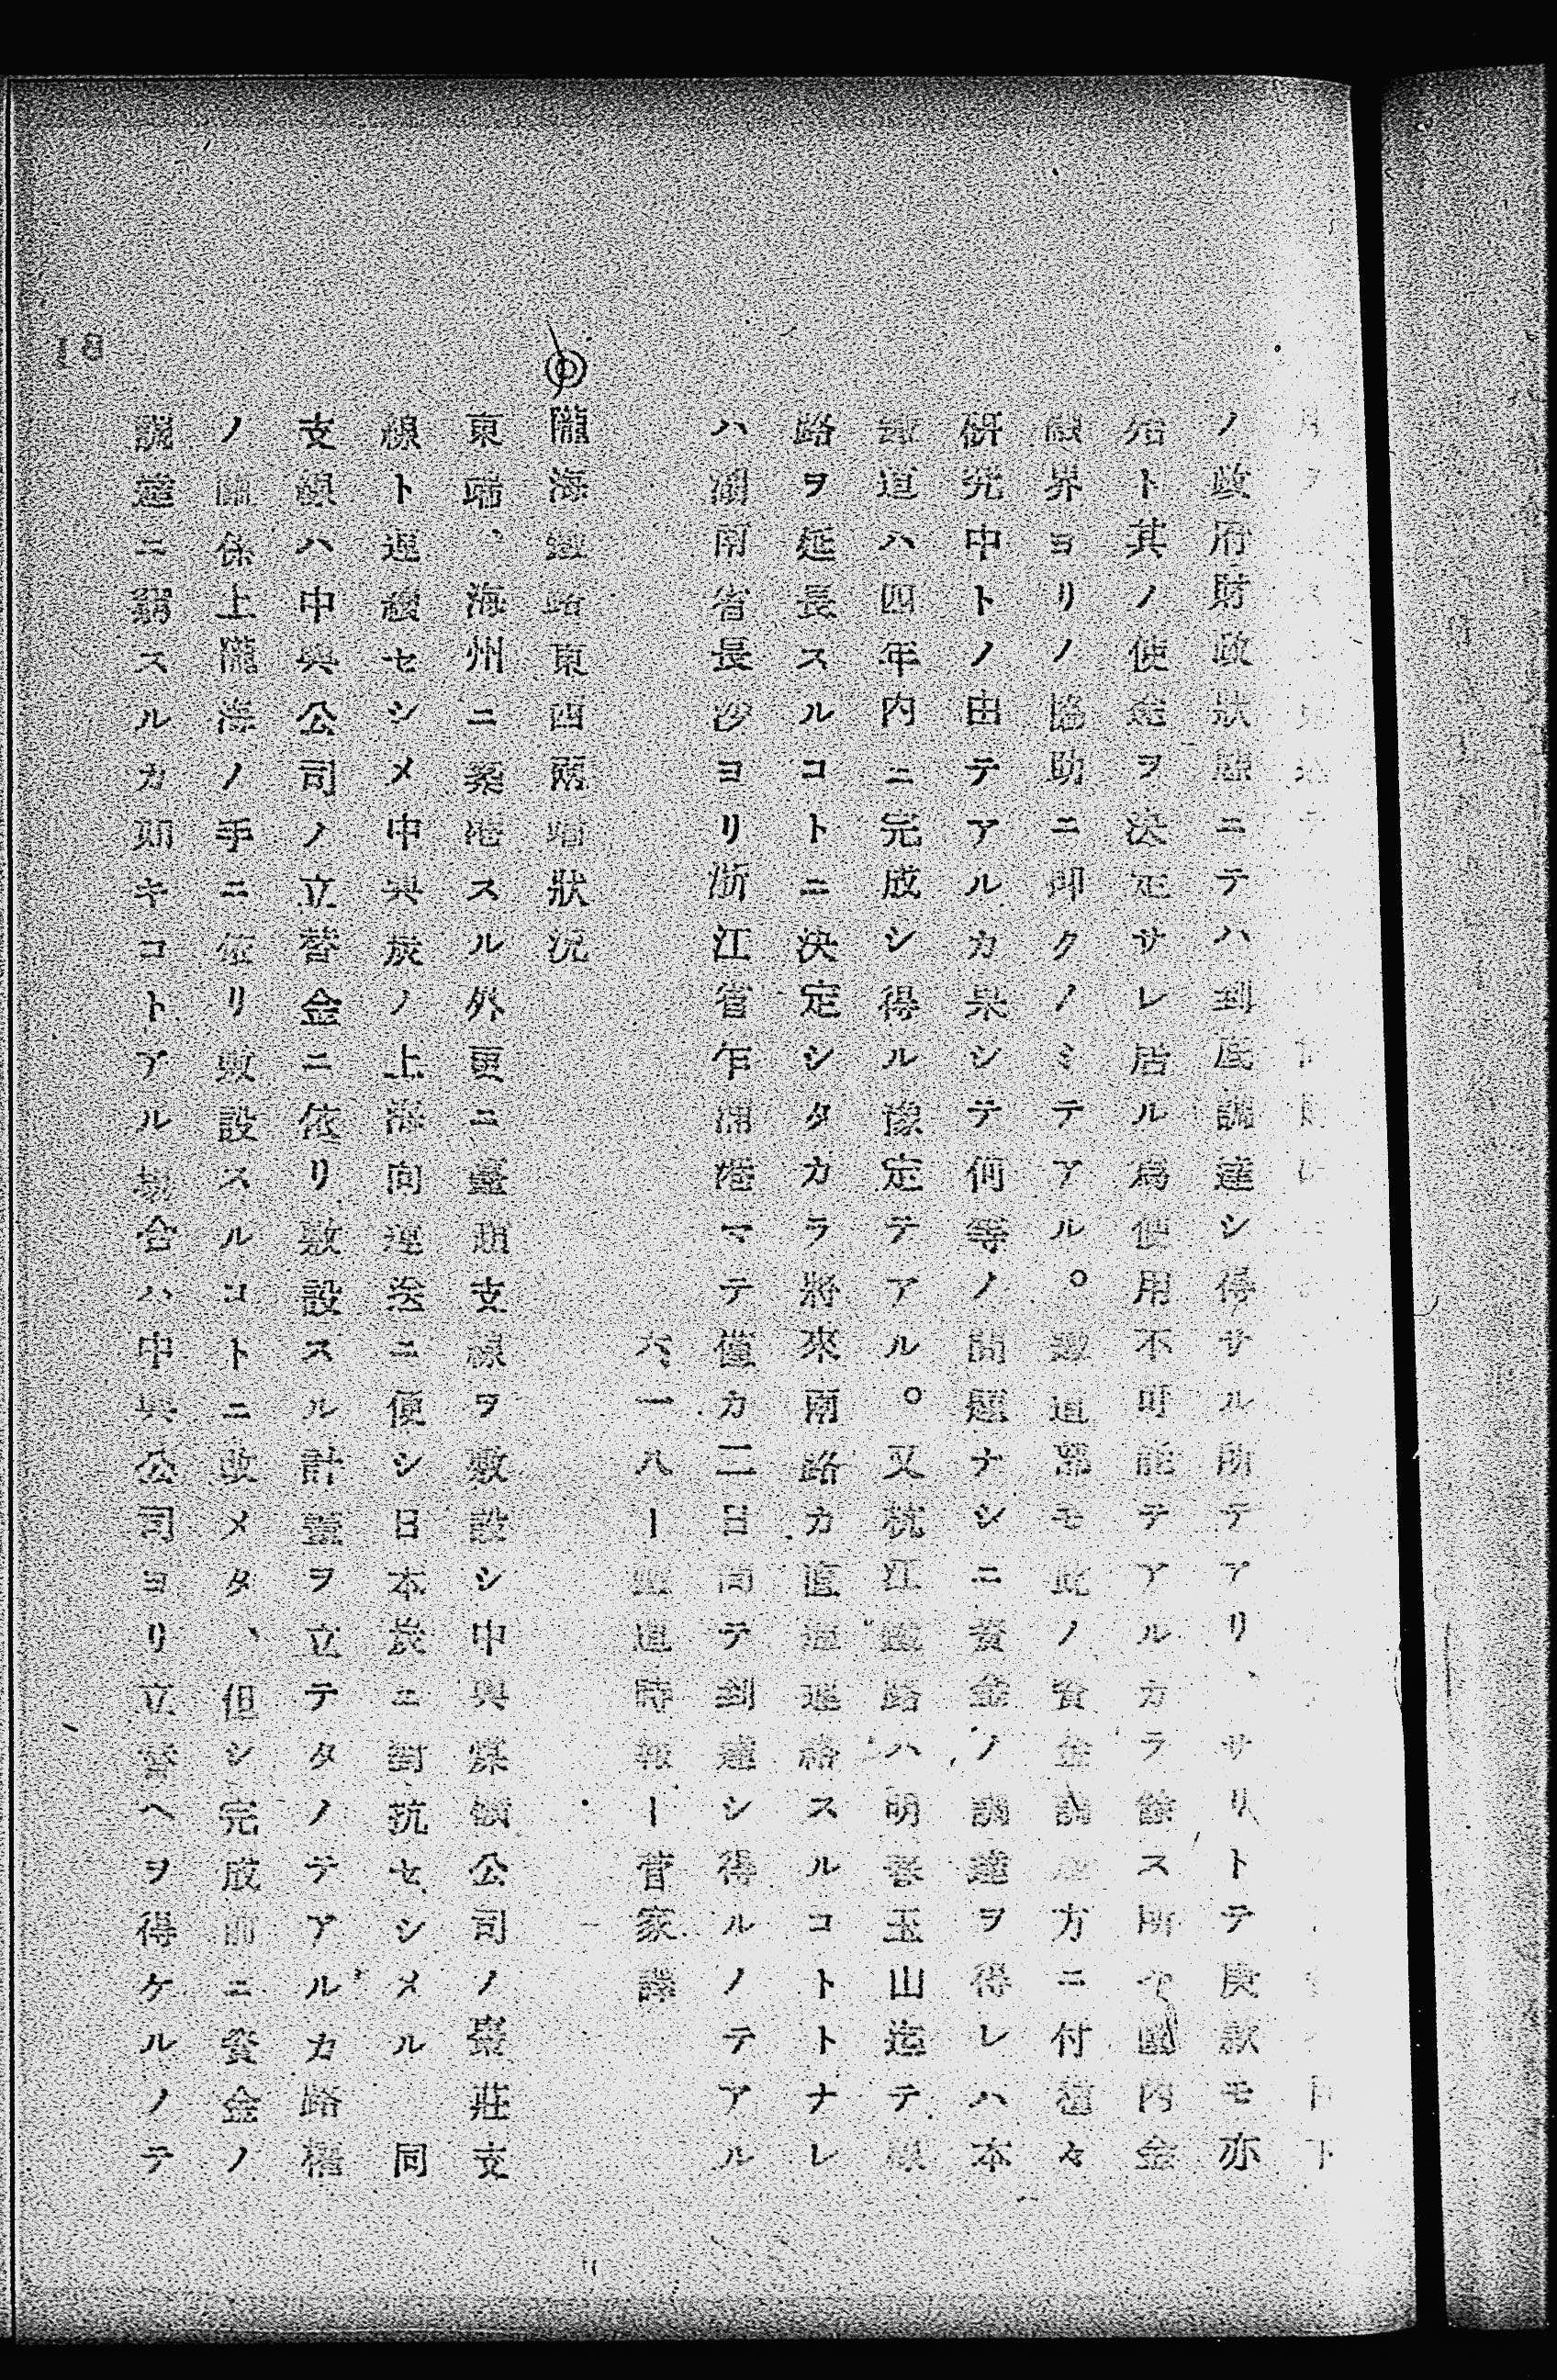 ノ政府財政狀態ニテハ到底調達シ得サル所テアリ、サリトテ庚款モ亦
殆ト其ノ使途ヲ決定サレ居ル爲使用不可能テアルカラ餘ス所ヤ國内金
融界ヨリノ協助ニ卽クノミテアル。鐵道部モ此ノ資金調達方ニ付種々
硏究中トノ由テアルカ果シテ何等ノ問題ナシニ資金ノ調達ヲ得レハ本
鐵道ハ四年内ニ完成シ得ル豫定テアル。又杭江鐵路ハ明春玉山迄テ線
路ヲ延長スルコトニ決定シタカラ將來兩路カ直通連絡スルコトトナレ
ハ湖南省長沙ヨリ浙江省乍浦港マテ僅カ二日間テ到達シ得ルノテアル
六、一八ー鐵道時報ー菅家譯
◎隴海鐵路東西兩端狀況
東端、海州ニ築港スル外更ニ臺趙支線ヲ敷設シ中興煤鑛公司ノ棗莊支
線ト連接セシメ中興炭ノ上海向運送ニ便シ日本炭ニ對抗セシメル 同
支線ハ中興公司ノ立替金ニ依リ敷設スル計畫ヲ立テタノテアルカ路權
ノ關係上隴海ノ手ニ依リ敷設スルコトニ改メタ、但シ完成前ニ資金ノ
調達ニ窮スルカ如キコトアル場合ハ中興公司ヨリ立替ヘヲ得ケルノテ
18